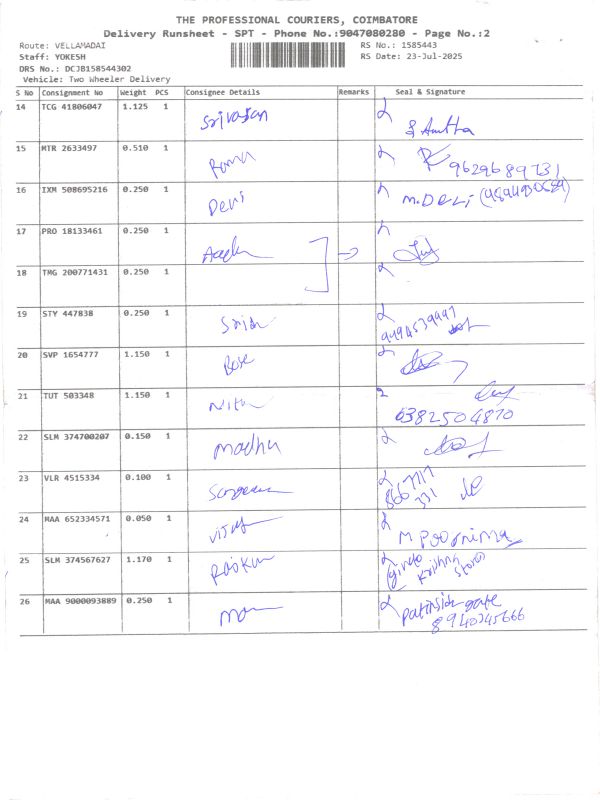 THE PROFESSIONAL COURIERS, COIMBATORE
Delivery Runsheet - SPT - Phone No.:9047080280 - Page No.:2
Route: VELLAMADAI RS No.: 1585443
Staff: YOKESH RS Date: 23-Jul-2025
DRS No.: DCJB158544302
Vehicle: Two Wheeler Delivery
S No Consignment No Weight PCS Consignee Details Remarks Seal & Signature
14 TCG 41806047 1.125 1 Srivasan
15 MTR 2633497 0.510 1 9629689731
16 IXM 508695216 0.250 1 Devi
17 PRO 18133461 0.250 1
18 TMG 200771431 0.250 1
19 STY 447838 0.250 1
20 SVP 1654777 1.150 1 Bose
21 TUT 503348 1.150 1 6382504870
22 SLM 374700207 0.150 1 madhu
23 VLR 4515334 0.100 1
24 MAA 652334571 0.050 1 M Poornima
25 SLM 374567627 1.170 1 Krishna Stores
26 MAA 9000093889 0.250 1 gate
8940345666